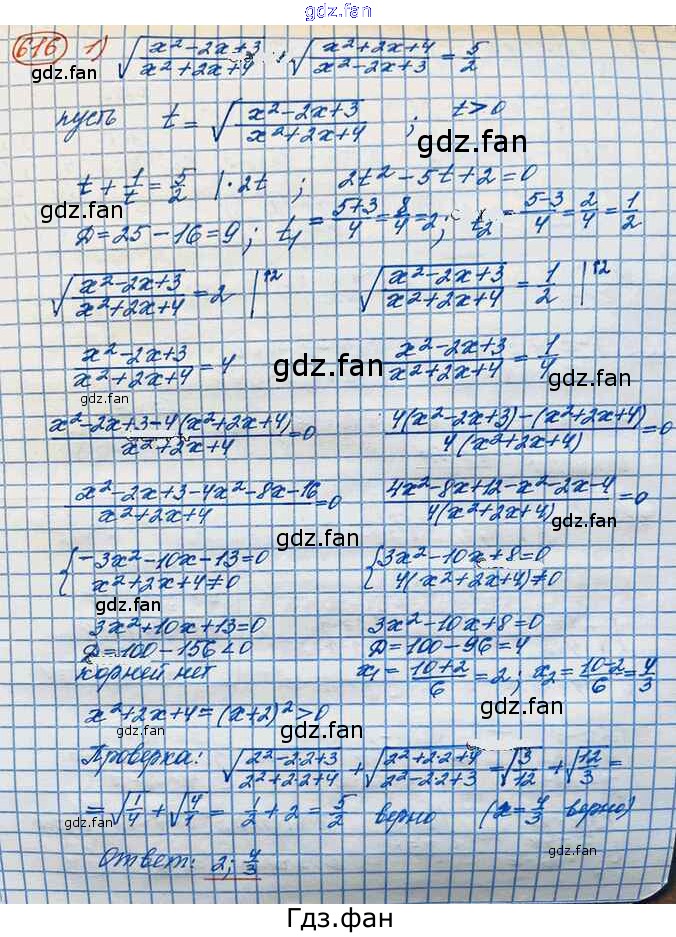 gdz.fan
616 1) √(x²-2x+3)/(x²+2x+4) + √(x²+2x+4)/(x²-2x+3) = 5/2
gdz.fan gdz.fan
пусть t = √(x²-2x+3)/(x²+2x+4) ; t>0
gdz.fan
t + 1/t = 5/2 |·2t ; 2t²-5t+2=0
gdz.fan
Д=25-16=9; t₁ = (5+3)/4 = 8/4 = 2; t₂ = (5-3)/4 = 2/4 = 1/2
gdz.fan
√(x²-2x+3)/(x²+2x+4) = 2 |↑2 √(x²-2x+3)/(x²+2x+4) = 1/2 |↑2
gdz.fan
(x²-2x+3)/(x²+2x+4) = 4 (x²-2x+3)/(x²+2x+4) = 1/4
gdz.fan
gdz.fan
gdz.fan
(x²-2x+3-4(x²+2x+4))/(x²+2x+4) = 0 (4(x²-2x+3)-(x²+2x+4))/(4(x²+2x+4)) = 0
(x²-2x+3-4x²-8x-16)/(x²+2x+4) = 0 (4x²-8x+12-x²-2x-4)/(4(x²+2x+4)) = 0
gdz.fan
gdz.fan
{-3x²-10x-13=0 {3x²-10x+8=0
x²+2x+4≠0 4(x²+2x+4)≠0
gdz.fan
3x²+10x+13=0 3x²-10x+8=0
Д=100-156<0 Д=100-96=4
gdz.fan
корней нет x₁ = (10+2)/6 = 2; x₂ = (10-2)/6 = 4/3
x²+2x+4=(x+2)²>0
gdz.fan
gdz.fan
Проверка: √(2²-2·2+3)/(2²+2·2+4) + √(2²+2·2+4)/(2²-2·2+3) = √3/12 + √12/3 =
= √1/4 + √4/1 = 1/2 + 2 = 5/2 верно (x=4/3 верно)
gdz.fan
gdz.fan
Ответ: 2; 4/3
gdz.fan
Гдз.фан